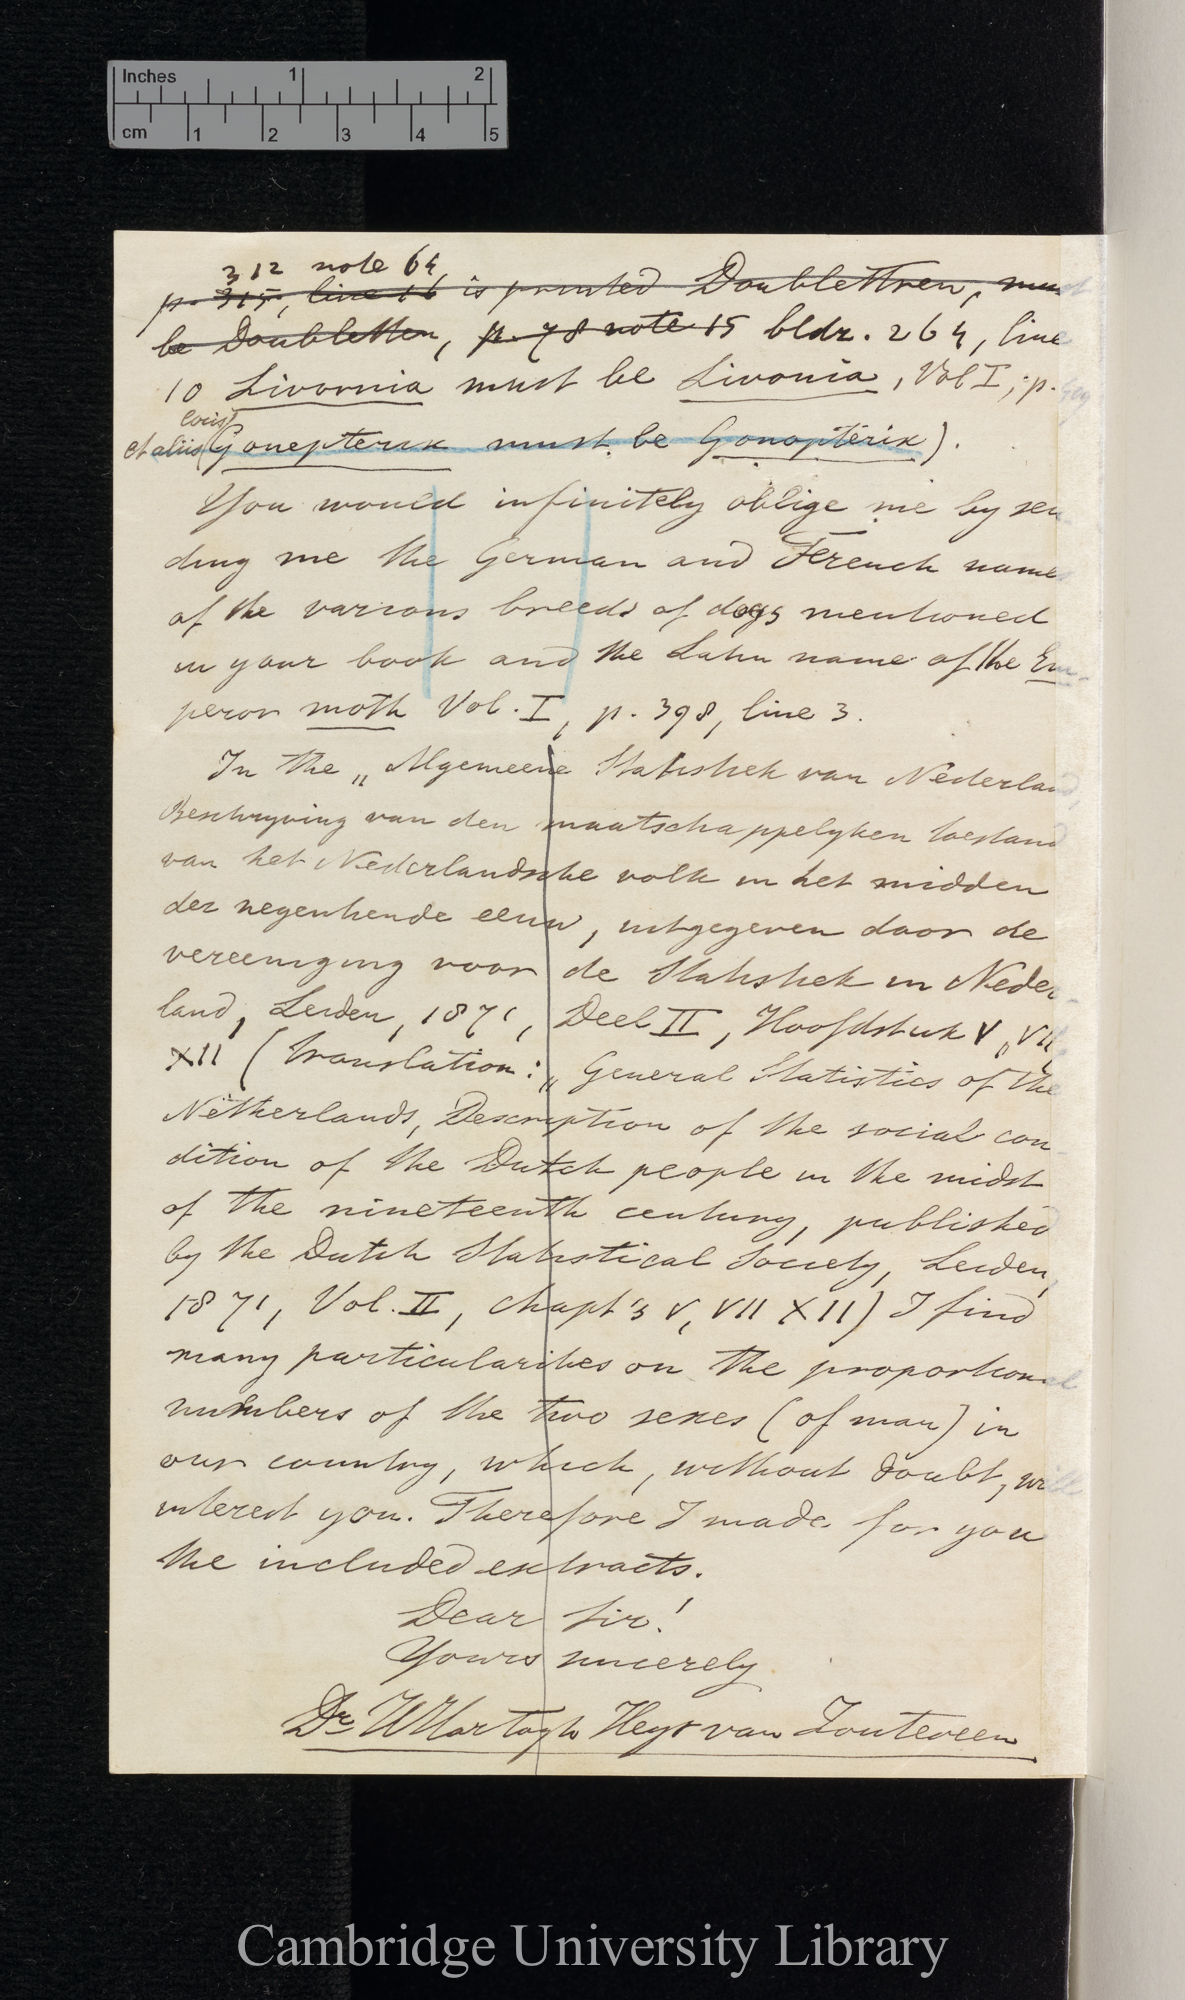 Inches 1 2
cm 1 2 3 4 5
312 note 64
p. 315, line 16 is printed Doublettren, must
be Doubletten, p. 78 note 15 bldr. 264, line
10 Livornia must be Livonia, Vol I, p.
locis
et aliis (Gonepterix must be Gonopterix).
You would infinitely oblige me by sen
ding me the German and French names
of the various breeds of dogs mentioned
in your book and the Latin name of the Em-
peror moth Vol. I, p. 398, line 3.
In the „Algemeene Statistiek van Nederland,
Beschryving van den maatschappelyken toestand
van het Nederlandsche volk in het midden
der negentiende eeuw, uitgegeven door de
vereeniging voor de Statistiek in Neder-
land, Leiden, 1871, Deel II, Hoofdstuk V, VII,
XII (translation: „General Statistics of the
Netherlands, Description of the social con-
dition of the Dutch people in the midst
of the nineteenth century, published
by the Dutch Statistical Society, Leiden,
1871, Vol. II, chapt's V, VII XII) I find
many particularities on the proportional
numbers of the two sexes (of man) in
our country, which, without doubt, will
interest you. Therefore I made for you
the included extracts.
Dear Sir!
Yours sincerely
Dr W Hartogh Heys van Zouteveen
Cambridge University Library